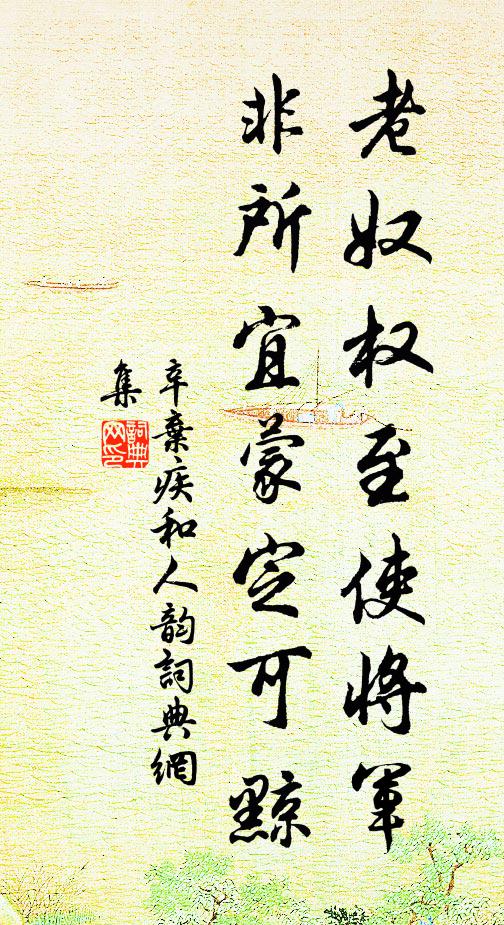 老奴权至使將軍
非所宜蒙定可黥
辛棄疾和人韵詞典網
集
詞典
网印